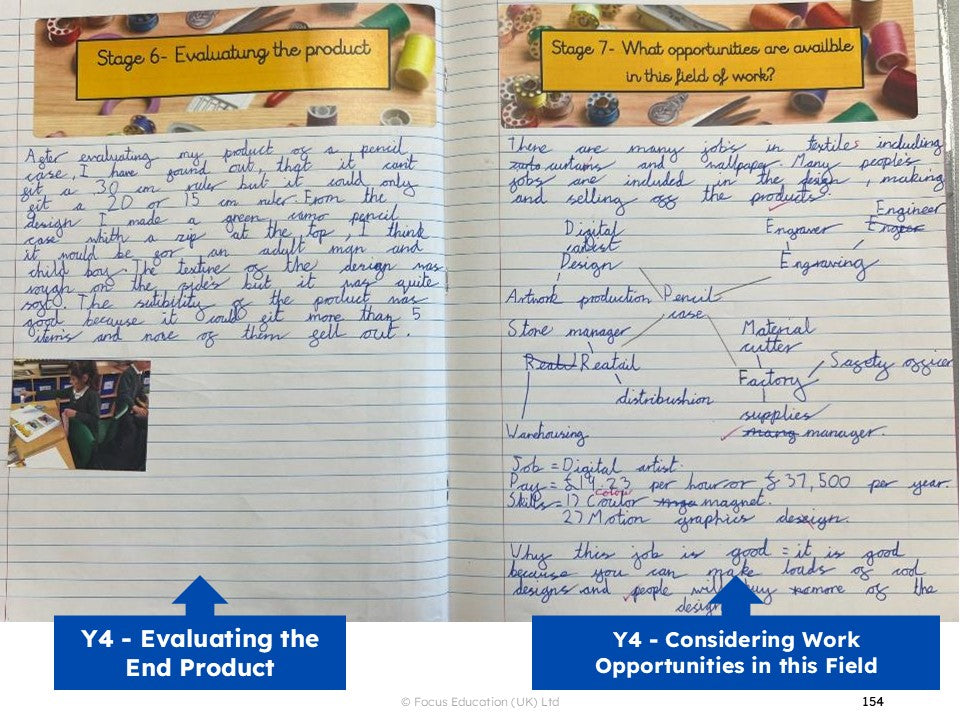 Stage 6- Evaluating the product
After evaluating my product of a pencil
case, I have found out, thgt it can't
fit a 30 cm ruler but it could only
fit a 20 or 15 cm ruler. From the
design I made a green camo pencil
case whith a zip at the top, I think
it would be for an adult man and
child boy. The texture of the design was
rough on the side's but it was quite
soft. The sutibility of the product was
good because it could fit more than 5
item's and none of them fell out.
Stage 7- What opportunities are availble
in this field of work?
There are many job's in textiles including
curtains and wallpaper. Many people's
jobs are included in the design, making
and selling off the products.
Digital
artist
Design
Engraver
Engineer
Engraving
Artwork production
Pencil
case
Store manager
Reatail
distribushion
Warehousing
Material
cutter
Factory
Safety officer
supplies
manager.
Job = Digital artist.
Pay = £19.23 per hour or £37,500 per year.
colour
Skills = 1) magnet.
2) Motion graphics design.
Why this job is good = it is good
because you can make loads of cool
designs and people will buy more of the
design
Y4 - Evaluating the
End Product
Y4 - Considering Work
Opportunities in this Field
© Focus Education (UK) Ltd
154